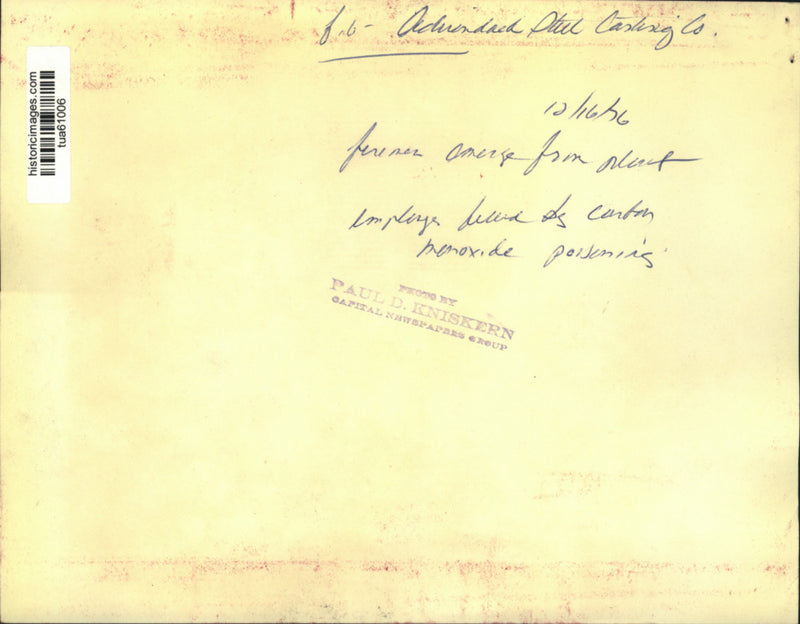 f.b - Adirondack Steel Casting Co.
12/16/76
firemen emerge from plant
employe killed by carbon
monoxide poisoning
PHOTO BY
PAUL D. KNISKERN
CAPITAL NEWSPAPERS GROUP
historicimages.com
tua61006